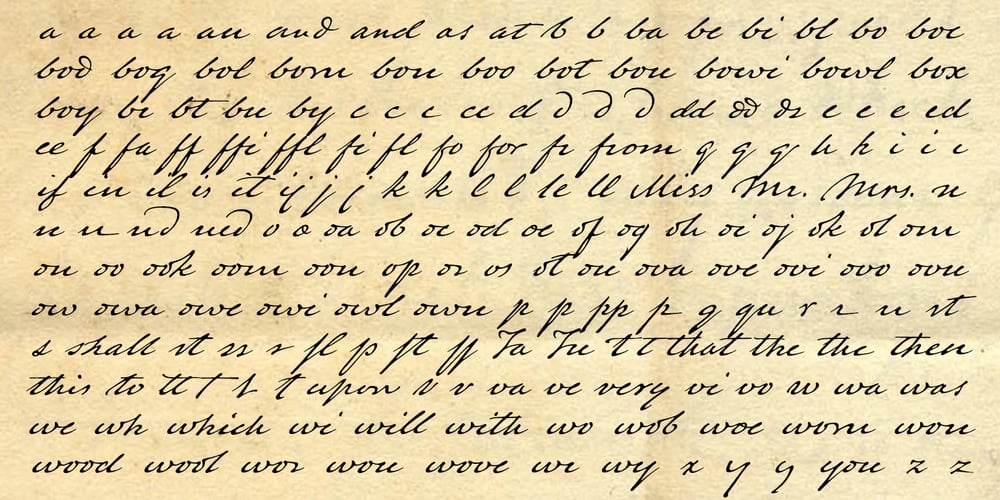 a a a a an and and as at b b ba be bi bl bo boe
bod bog bol bom bon boo bot bou bowi bowl box
boy br bt bu by c c c ce d d d d dd dd ds e e e ed
ee f fa ff ffi ffl fi fl fo for fr from g g g h h i i i
if in il is it ij j j k k l l le ll Miss Mr. Mrs. n
n n nd ned o o oa ob oc od oe of og oh oi oj ok ol om
on oo ook oom oon op or os ot ou ova ove ovi ovo ovu
ow owa owe owi owl own p p pp p q qu r r rr rt
s shall st ss s ſl p ſt ſſ Ta Tu t t that the the then
this to tt t t t upon v v va ve very vi vo w wa was
we wh which wi will with wo wob woe wom won
wood wool wor wou wove wr wy x y y you z z